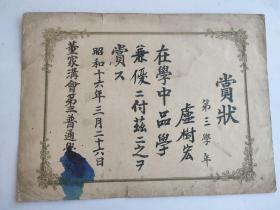 賞狀
第三學年
盧樹宏
在學中品學
兼優ニ付茲ニ之ヲ
賞ス
昭和十六年三月二十六日
董家溝會第三普通學